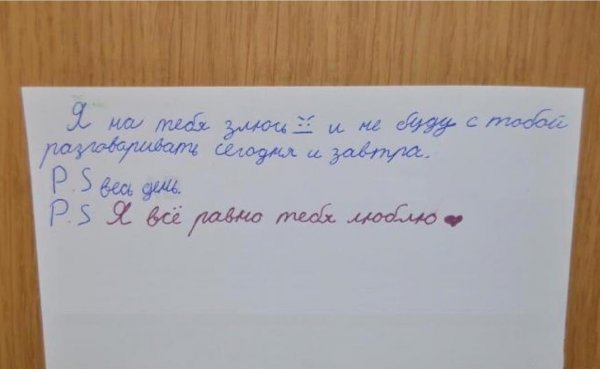 Я на тебя злюсь и не буду с тобой
разговаривать сегодня и завтра.
P.S весь день.
P.S Я всё равно тебя люблю